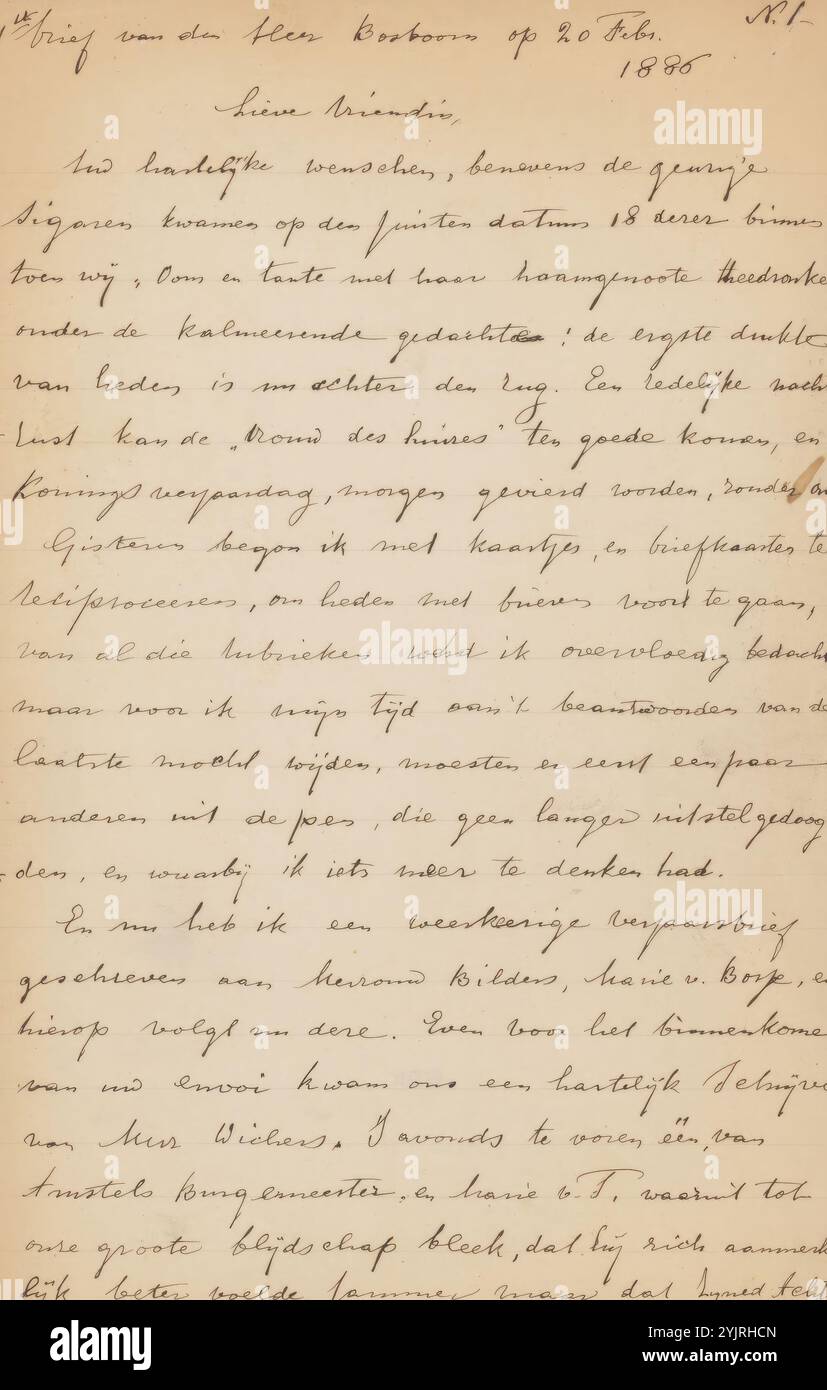 1e brief van den Heer Bosboom op 20 Febr. N. 1-
1886
Lieve Vriendin,
Uw hartelijke wenschen, benevens de geurige
Sigaren kwamen op den juisten datum 18 dezer binnen
toen wij, Oom en tante met haar naamgenoote theedronke
onder de kalmeerende gedachte: de ergste drukte
van heden is nu achter den rug. Een redelijke nach
rust kan de „Vrouw des huizes" ten goede komen, en
Konings verjaardag, morgen gevierd worden, zonder
Gisteren begon ik met kaartjes, en briefkaarten te
reciproceeren, om heden met brieven voort te gaan,
van al die rubrieken werd ik overvloedig bedacht
maar voor ik mijn tijd aan 't beantwoorden van de
laatste mocht wijden, moesten er eerst een paar
anderen uit de pen, die geen langer uitstel gedoog
den, en waarbij ik iets meer te denken had.
En nu heb ik een weerkeerige verjaarsbrief
geschreven aan Mevrouw Bilders, Marie v. Bosse, e
hierop volgt nu deze. Even voor het binnenkome
van uw envoi kwam ons een hartelijk Schrijve
van Mevr Wichers. 's avonds te voren één, van
Amstels Burgemeester, en Marie v. T. waaruit tot
onze groote blijdschap bleek, dat Zij zich aanmerk
lijk beter voelde Jammer maar dat
alamy
a
2YJRHCN
www.alamy.com